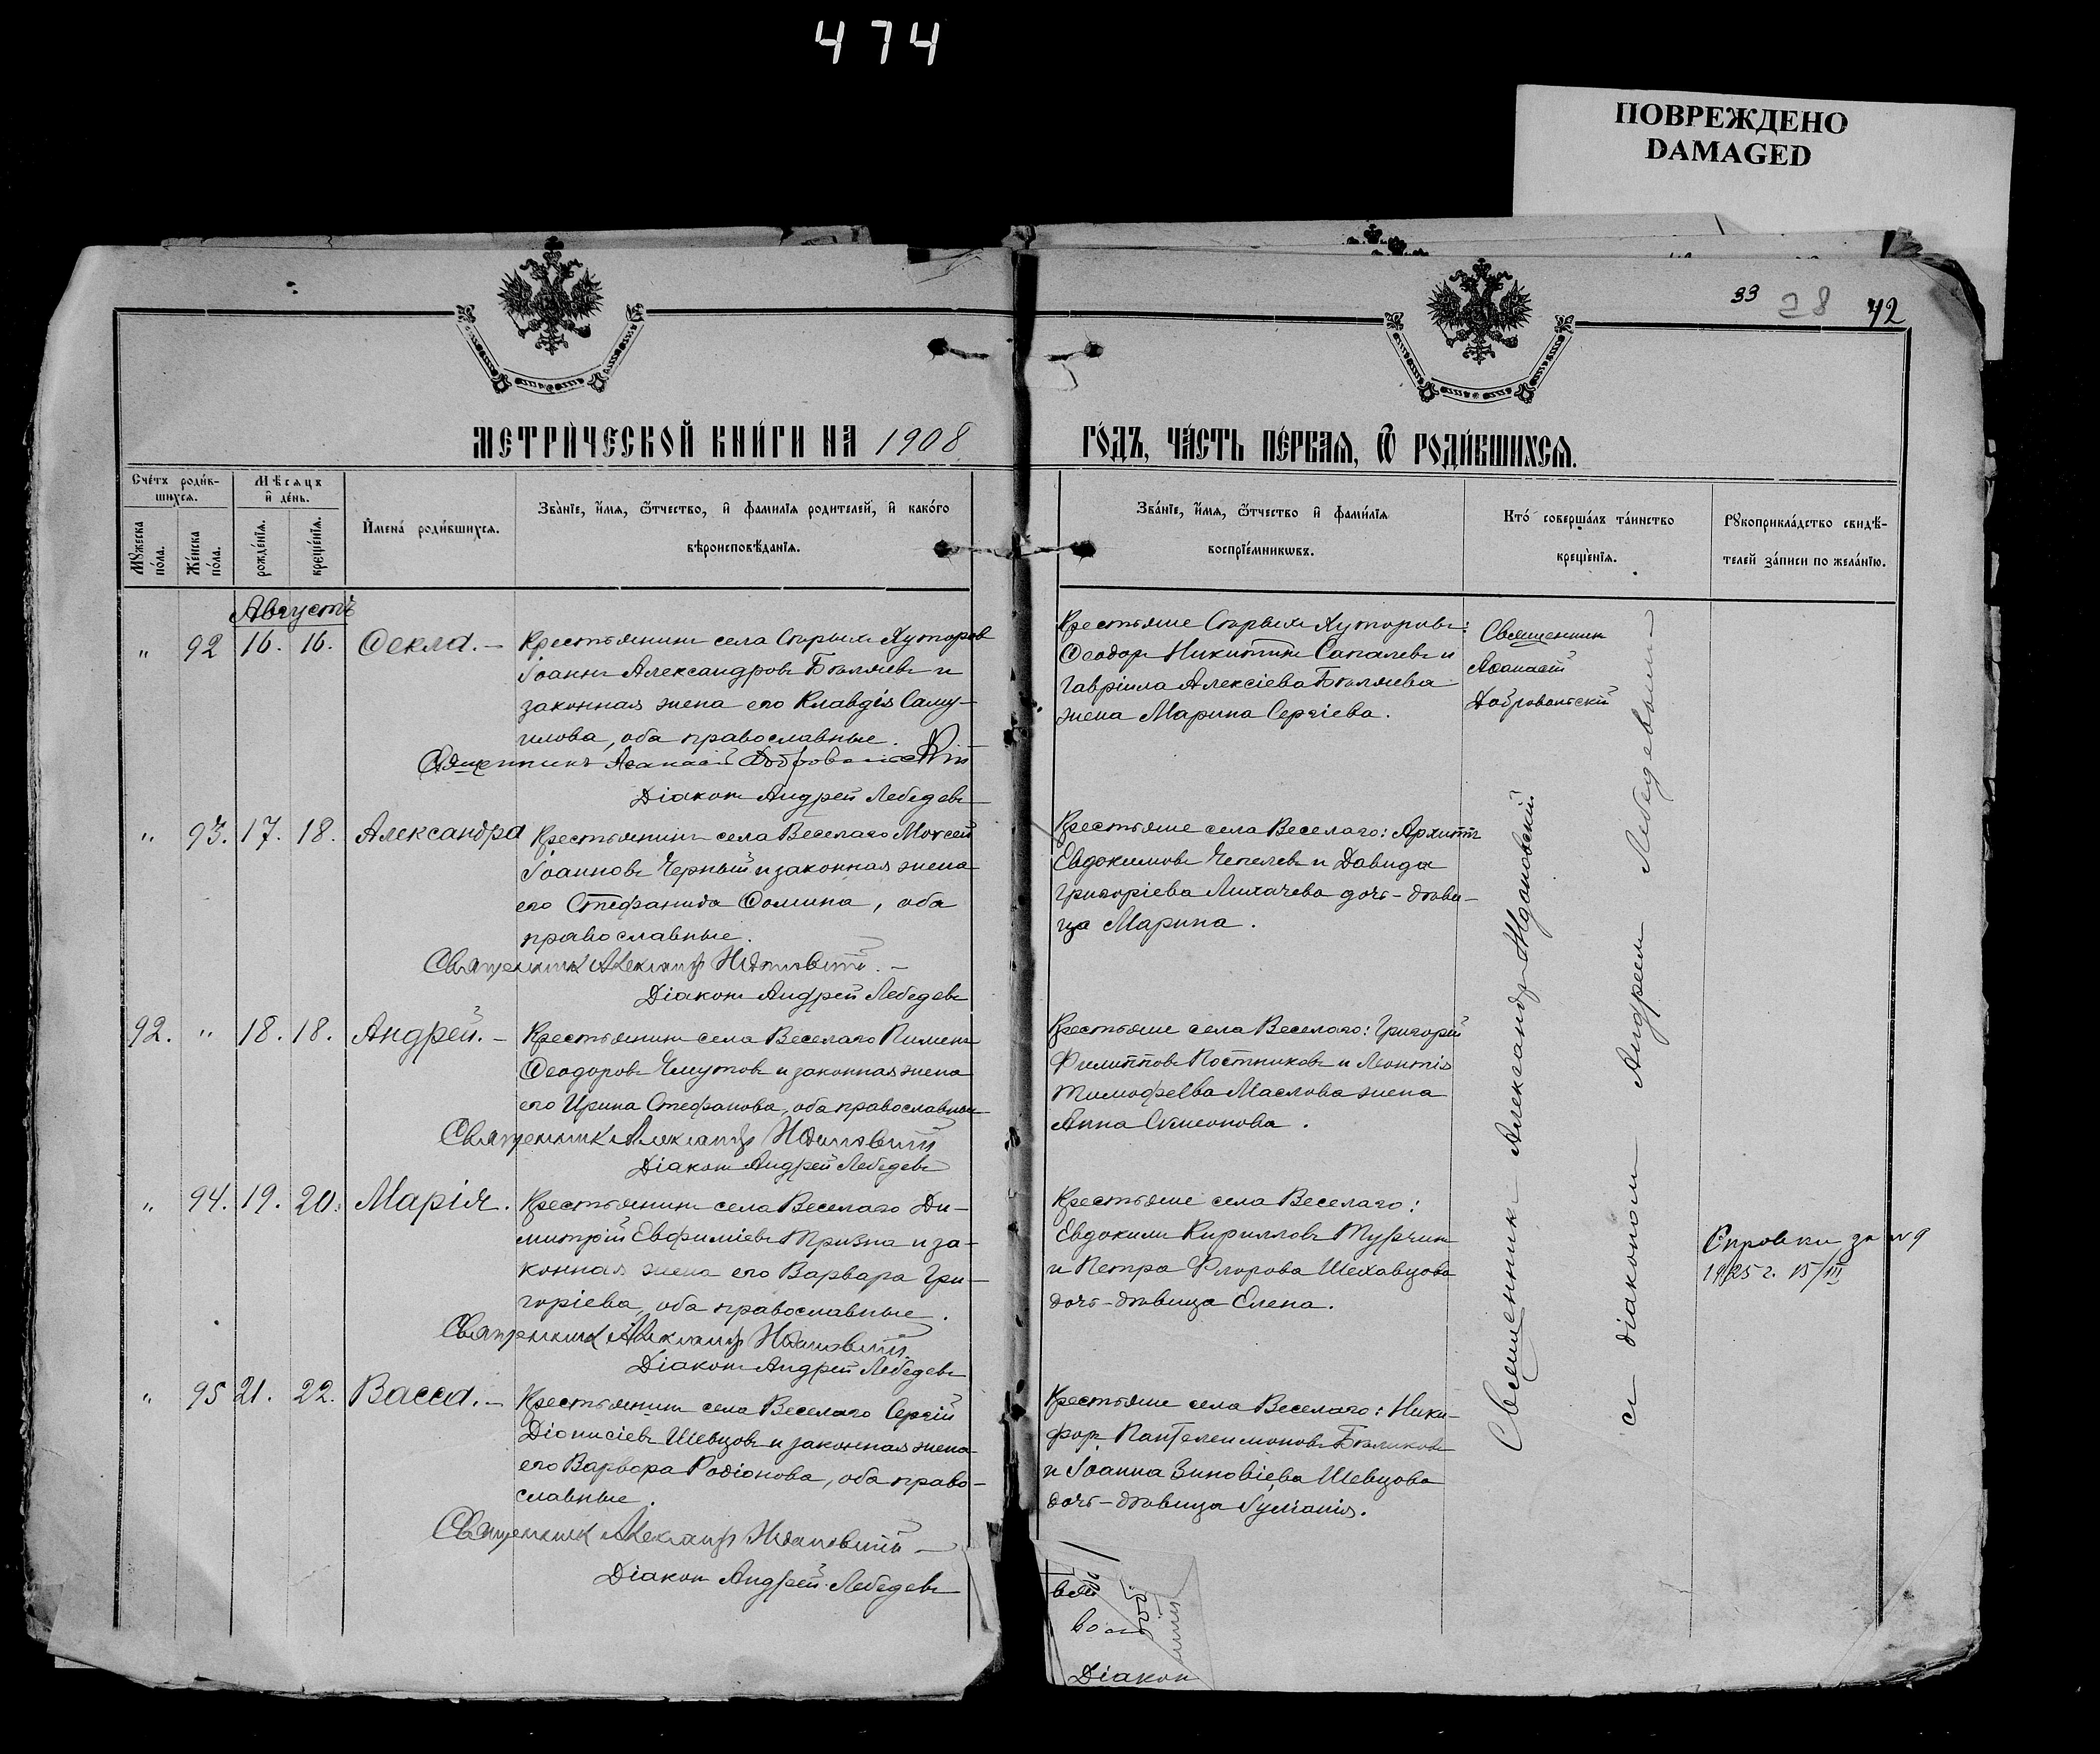 474
ПОВРЕЖДЕНО
DAMAGED
33 28 42
МЕТРИЧЕСКОЙ КНИГИ НА 1908
ГОДЪ, ЧАСТЬ ПЕРВАЯ, Ѿ РОДИВШИХСЯ.
Счетъ родив-
шихся.
Мужеска пола.
Женска пола.
Мѣсяцъ
и день.
рожденія.
крещенія.
Имена родившихся.
Званіе, имя, ѿчество, и фамилія родителей, и какого
вѣроисповѣданія.
Званіе, имя, ѿчество и фамилія
воспріемниковъ.
Кто совершалъ таинство
крещенія.
Рукоприкладство свидѣ-
телей записи по желанію.
Августъ
" 92 16. 16. Ѳекла. – Крестьянинъ села Старыхъ Хуторовъ
Іоаннъ Александровъ Бѣляевъ и
законная жена его Клавдія Саму-
илова, оба православные.
Священникъ Аѳанасій Добровольскій
Діаконъ Андрей Лебедевъ
Крестьяне Старыхъ Хуторовъ:
Ѳеодоръ Никитинъ Сапалевъ и
Гавріила Алексіева Бѣляева
жена Марина Сергіева.
Священникъ
Аѳанасій
Добровольскій
" 93. 17. 18. Александра Крестьянинъ села Веселаго Моѵсей
Іоанновъ Черный и законная жена
его Стефанида Ѳомина, оба
православные.
Священникъ Александръ Ждановскій. –
Діаконъ Андрей Лебедевъ
Крестьяне села Веселаго: Архиппъ
Евдокимовъ Чепелевъ и Давида
Григоріева Лихачева дочь-дѣви-
ца Марина.
92. " 18. 18. Андрей. – Крестьянинъ села Веселаго Пименъ
Ѳеодоровъ Чмутовъ и законная жена
его Ирина Стефанова, оба православные
Священникъ Александръ Ждановскій
Діаконъ Андрей Лебедевъ
Крестьяне села Веселаго: Григорій
Филипповъ Постниковъ и Леонтія
Тимофеева Маслова жена
Анна Сѵмеонова.
" 94. 19. 20. Марія. Крестьянинъ села Веселаго Ди-
митрій Евфиміевъ Тризна и за-
конная жена его Варвара Гри-
горіева, оба православные.
Священникъ Александръ Ждановскій
Діаконъ Андрей Лебедевъ
Крестьяне села Веселаго:
Евдокимъ Кирилловъ Турчинъ
и Петра Флорова Шехавцова
дочь-дѣвица Елена.
Справки за №9
1925 г. 15/III
" 95 21. 22. Васса. – Крестьянинъ села Веселаго Сергій
Діонисіевъ Шевцовъ и законная жена
его Варвара Родіонова, оба право-
славные.
Священникъ Александръ Ждановскій
Діаконъ Андрей Лебедевъ
Крестьяне села Веселаго: Ники-
форъ Пантелеимоновъ Бѣликовъ
и Іоанна Зиновіева Шевцова
дочь-дѣвица Іуліанія.
Священникъ Александръ Ждановскій
съ діакономъ Андреемъ Лебедевымъ
Діакон